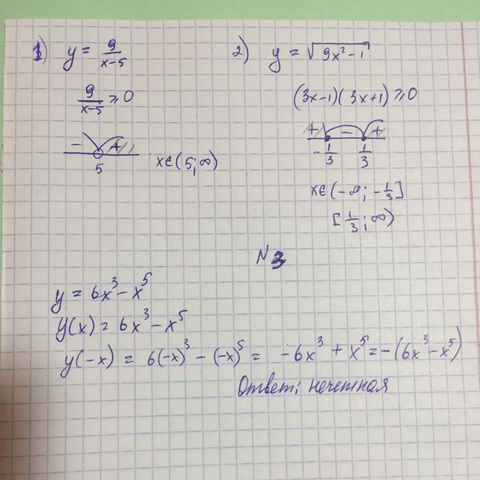 1) y = 9/(x-5)
9/(x-5) ≥ 0
- +
5
x∈(5; ∞)
2) y = √(9x²-1)
(3x-1)(3x+1) ≥ 0
+ - +
-1/3 1/3
x∈(-∞; -1/3]
[1/3; ∞)
N 3
y = 6x³ - x⁵
y(x) = 6x³ - x⁵
y(-x) = 6(-x)³ - (-x)⁵ = -6x³ + x⁵ = -(6x³ - x⁵)
Ответ: нечетная